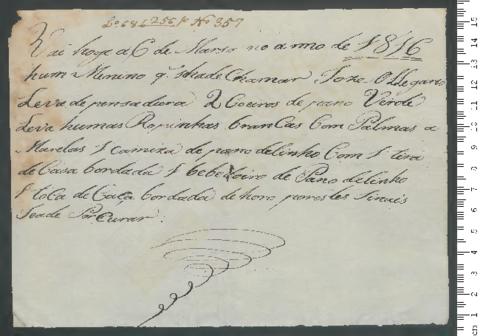 Lo 686 256 No 357
Vai hoge a 6 de Marso no anno de 1816
hum Menino q̃ shade Chamar Joze Ollegario
Leva de pensadura 2 Coeiros de pano Verde
Leva humas Roupinhas brancas Com Palmas a
Marelas 1 Camiza de pano de linho Com 1 tira
de Casa bordada 1 bebedoiro de Pano de linho
1 toca de Caça bordada de horo por estes Sinais
Seade Porcurar